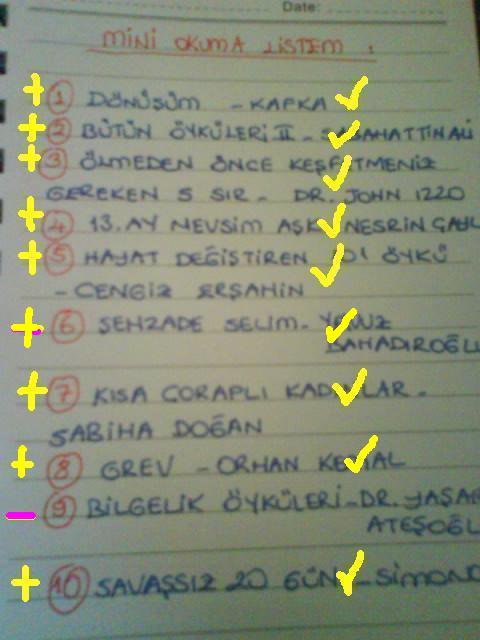 Date:
MİNİ OKUMA LİSTEM :
1 DÖNÜŞÜM - KAFKA
2 BÜTÜN ÖYKÜLERİ II - SABAHATTİN ALİ
3 ÖLMEDEN ÖNCE KEŞFETMENİZ
GEREKEN 5 SIR - DR. JOHN IZZO
4 13. AY NEVSİM AŞK NESRİN
5 HAYAT DEĞİŞTİREN 101 ÖYKÜ
- CENGİZ ERŞAHİN
6 ŞEHZADE SELİM - YAVUZ
BAHADIROĞLU
7 KISA ÇORAPLI KADINLAR -
SABİHA DOĞAN
8 GREV - ORHAN KEMAL
9 BİLGELİK ÖYKÜLERİ - DR. YAŞAR
ATEŞOĞL
10 SAVAŞSIZ 20 GÜN - SİMONO